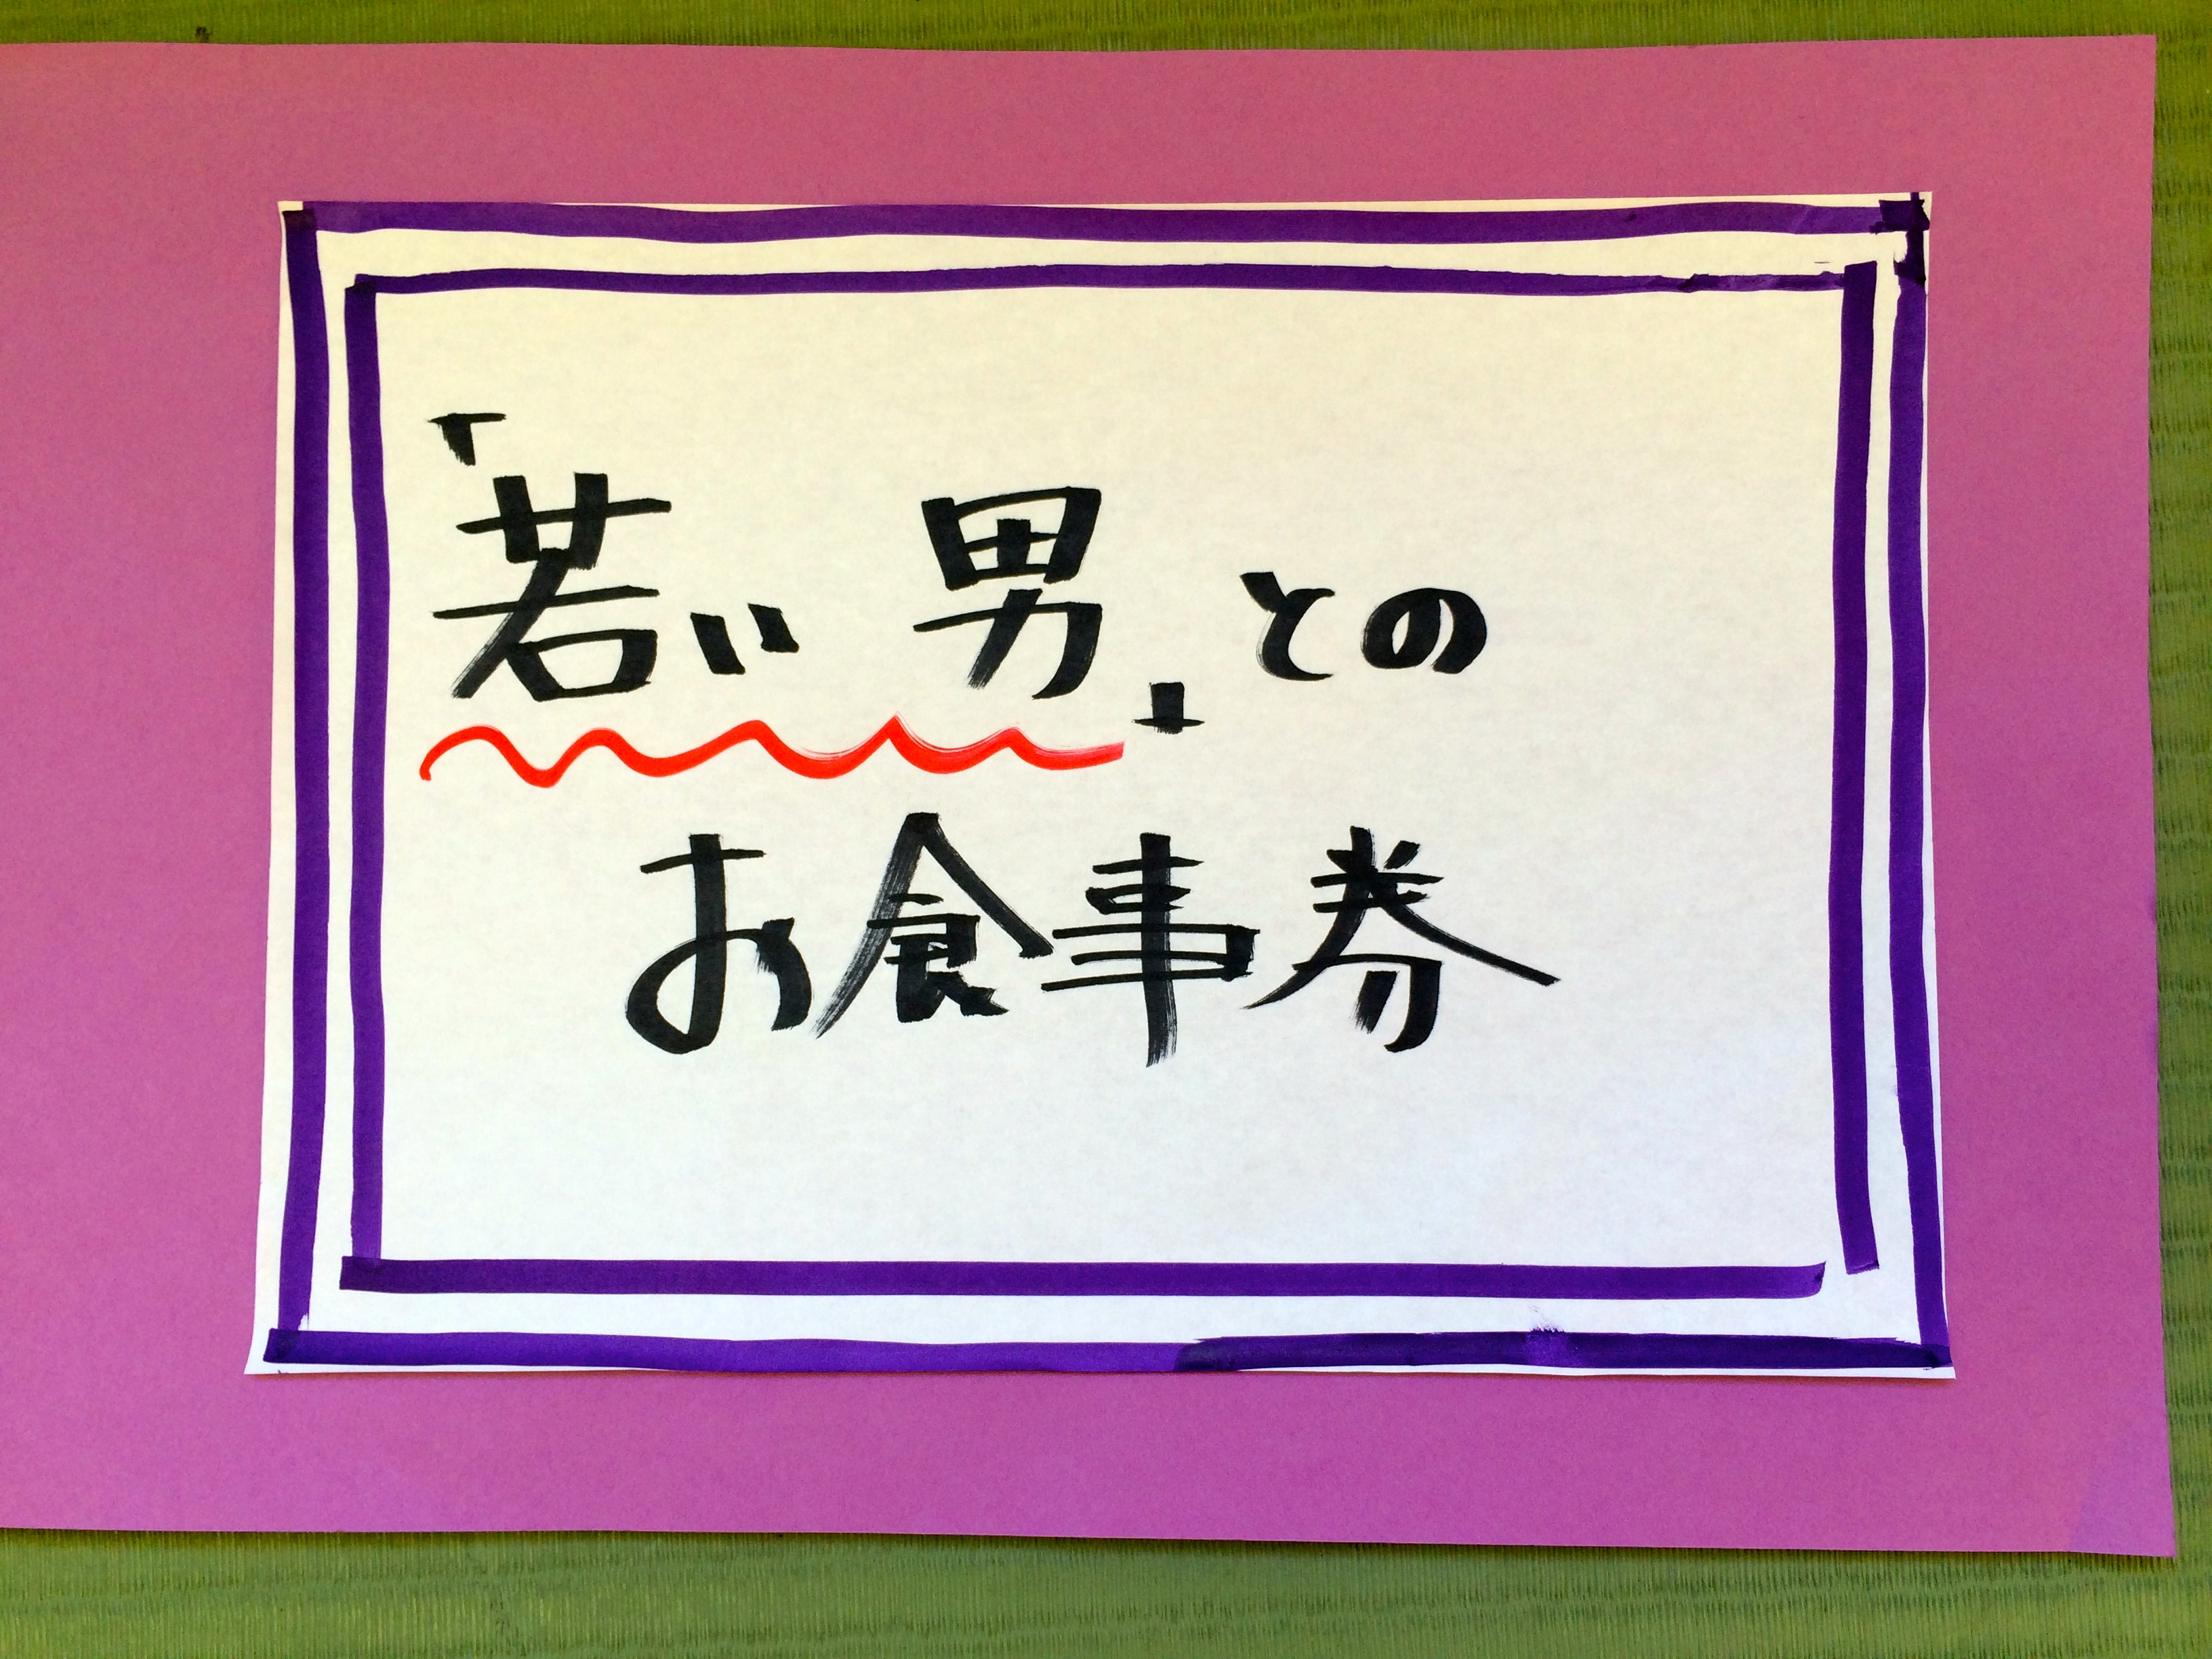 「若い男」との
お食事券